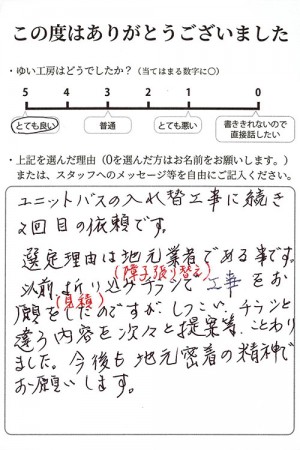 この度はありがとうございました
・ゆい工房はどうでしたか？（当てはまる数字に○）
5 4 3 2 1 0
とても良い 普通 とても悪い 書ききれないので直接話したい
・上記を選んだ理由（0を選んだ方はお名前をお願いします。）
または、スタッフへのメッセージ等を自由にご記入ください。
ユニットバスの入れ替工事に続き
2回目の依頼です。
選定理由は地元業者である事です。
(障子張り替え)
以前折り込みチラシで工事をお
(見積)
願をしたのですが、しつこい、チラシと
違う内容を次々と提案等、ことわり
ました。今後も地元密着の精神で
お願いします。